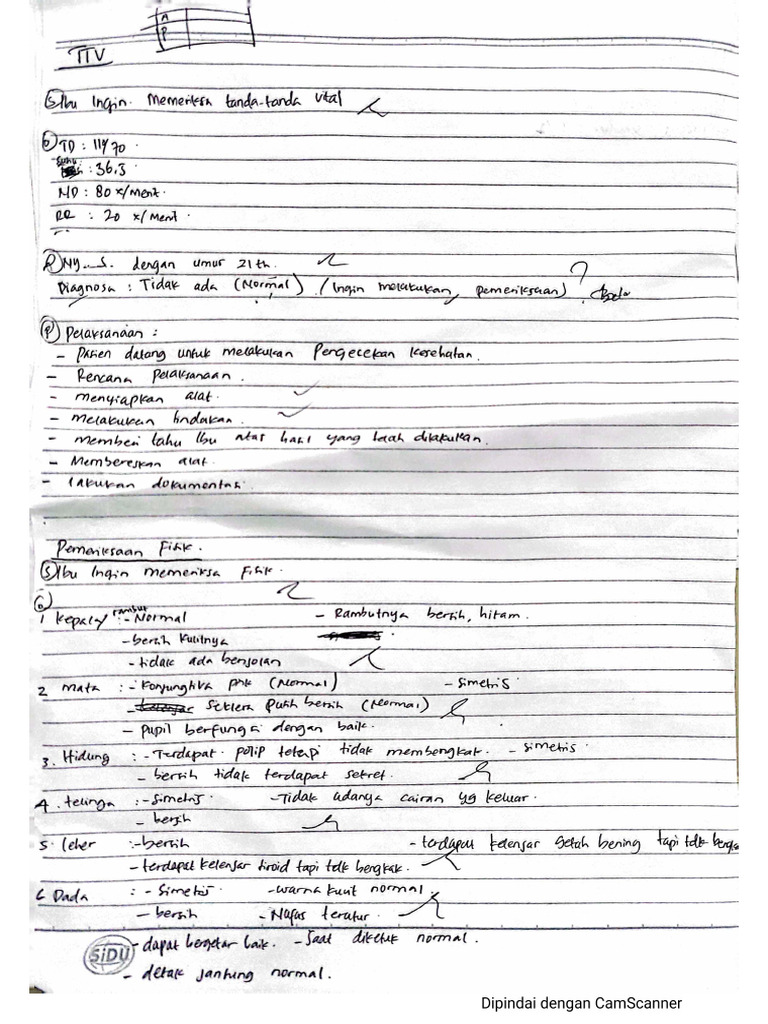 A
P
TTV
(S) Ibu Ingin memeriksa tanda-tanda vital
(O) TD : 119/70
Suhu : 36.3
ND : 80 x/menit
RR : 20 x/menit
NY. S. dengan umur 21 th.
Diagnosa : Tidak ada (Normal) / Ingin melakukan pemeriksaan) ?
(P) Pelaksanaan :
- Pasien datang untuk melakukan pengecekan kesehatan.
- Rencana pelaksanaan.
- menyiapkan alat.
- melakukan tindakan.
- memberi tahu Ibu atas hasil yang telah dilakukan.
- Membereskan alat.
- lakukan dokumentasi.
Pemeriksaan Fisik.
(S) Ibu Ingin memeriksa Fisik.
(O)
1 Kepala/rambut : - Normal - Rambutnya bersih, hitam.
- bersih kulitnya
- tidak ada benjolan
2 mata : - Konjungtiva pink (Normal) - Simetris
- Seklera putih bersih (Normal)
- pupil berfungsi dengan baik.
3. Hidung : - Terdapat polip tetapi tidak membengkak. - simetris
- bersih tidak terdapat sekret.
4. telinga : - simetris - Tidak adanya cairan yg keluar.
- bersih
5. leher : - bersih - terdapat kelenjar getah bening tapi tdk bengka
- terdapat kelenjar tiroid tapi tdk bengkak.
6 Dada : - Simetris - warna kulit normal.
- bersih - Nafas teratur.
- dapat bergetar baik. - Saat diketuk normal.
SiDU
- detak jantung normal.
Dipindai dengan CamScanner